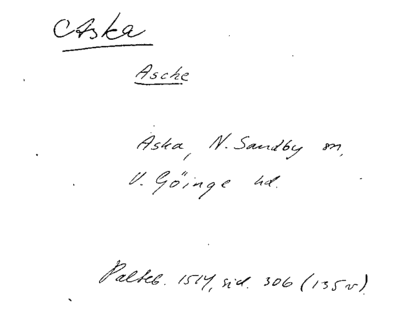 Aska
Asche
Aska, N. Sandby sn,
V. Göinge hd.
Palteb. 1514, sid. 306 (135 v)